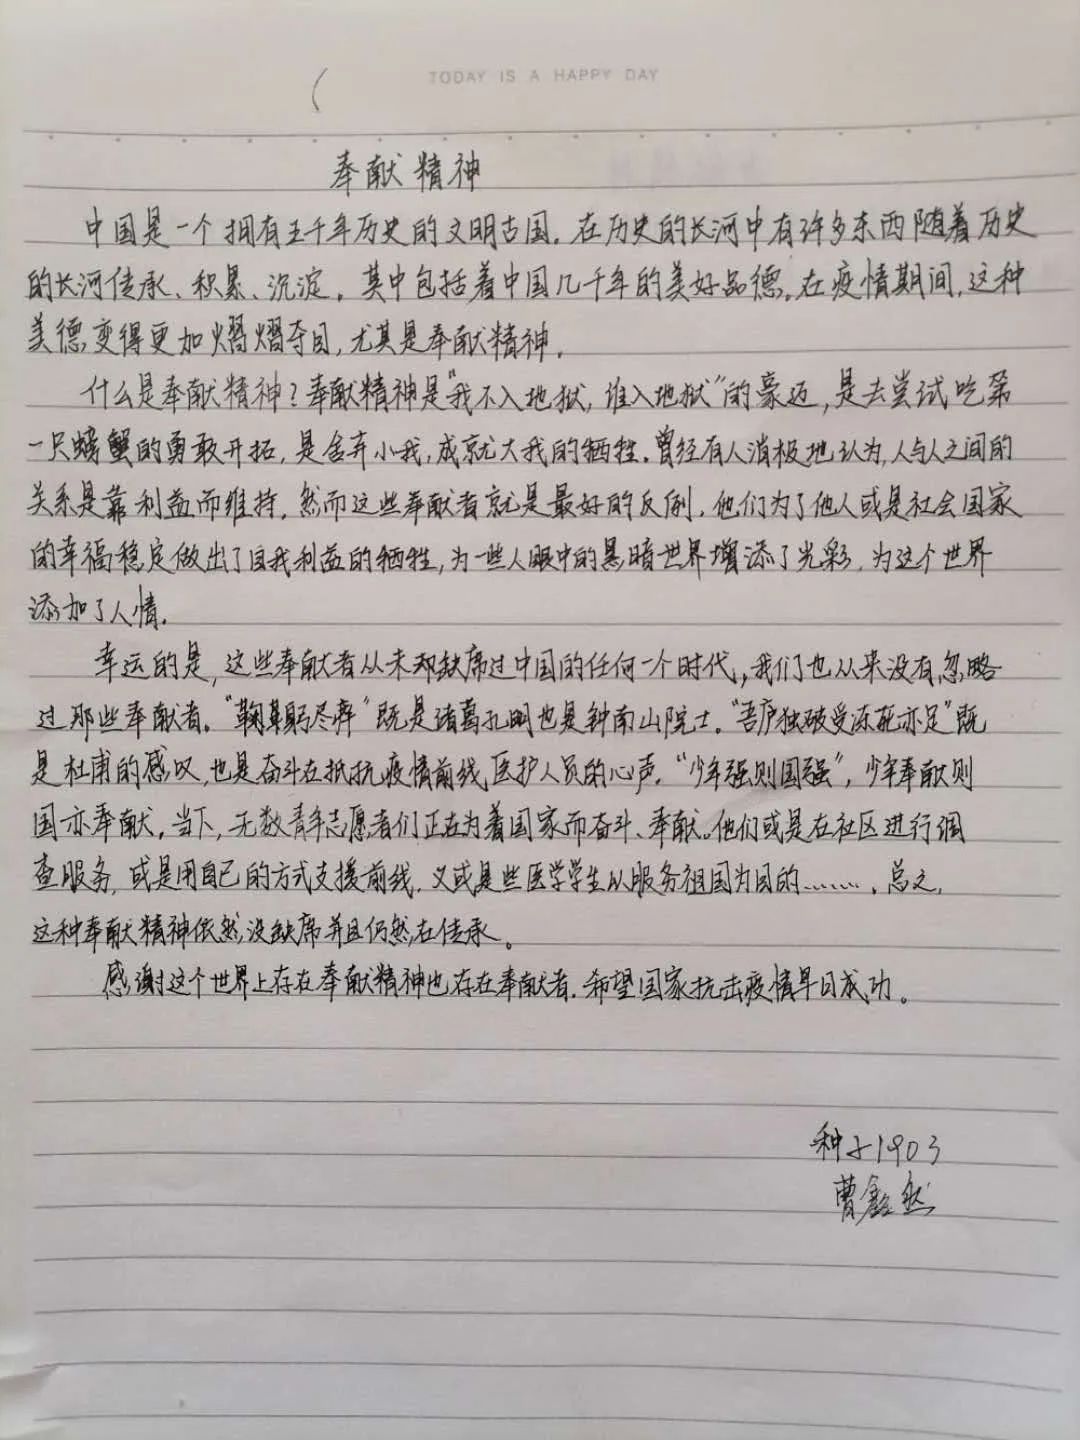 TODAY IS A HAPPY DAY
奉献精神
中国是一个拥有五千年历史的文明古国。在历史的长河中有许多东西随着历史
的长河传承、积累、沉淀。其中包括着中国几千年的美好品德。在疫情期间,这种
美德变得更加熠熠夺目,尤其是奉献精神。
什么是奉献精神?奉献精神是“我不入地狱,谁入地狱”的豪迈,是去尝试吃第
一只螃蟹的勇敢开拓,是舍弃小我,成就大我的牺牲。曾经有人消极地认为,人与人之间的
关系是靠利益而维持,然而这些奉献者就是最好的反例,他们为了他人或是社会国家
的幸福稳定做出了自我利益的牺牲,为一些人眼中的黑暗世界增添了光彩,为这个世界
添加了人情。
幸运的是,这些奉献者从未却缺席过中国的任何一个时代,我们也从来没有忽略
过那些奉献者。“鞠躬尽瘁”既是诸葛孔明也是钟南山院士。“吾庐独破受冻死亦足”既
是杜甫的感叹,也是奋斗在抵抗疫情前线医护人员的心声。“少年强则国强”,少年奉献则
国亦奉献。当下,无数青年志愿者们正在为着国家而奋斗、奉献。他们或是在社区进行调
查服务,或是用自己的方式支援前线,又或是些医学学生以服务祖国为目的……。总之,
这种奉献精神依然没缺席并且仍然在传承。
感谢这个世界上存在奉献精神也存在奉献者。希望国家抗击疫情早日成功。
种子1903
曹鑫然